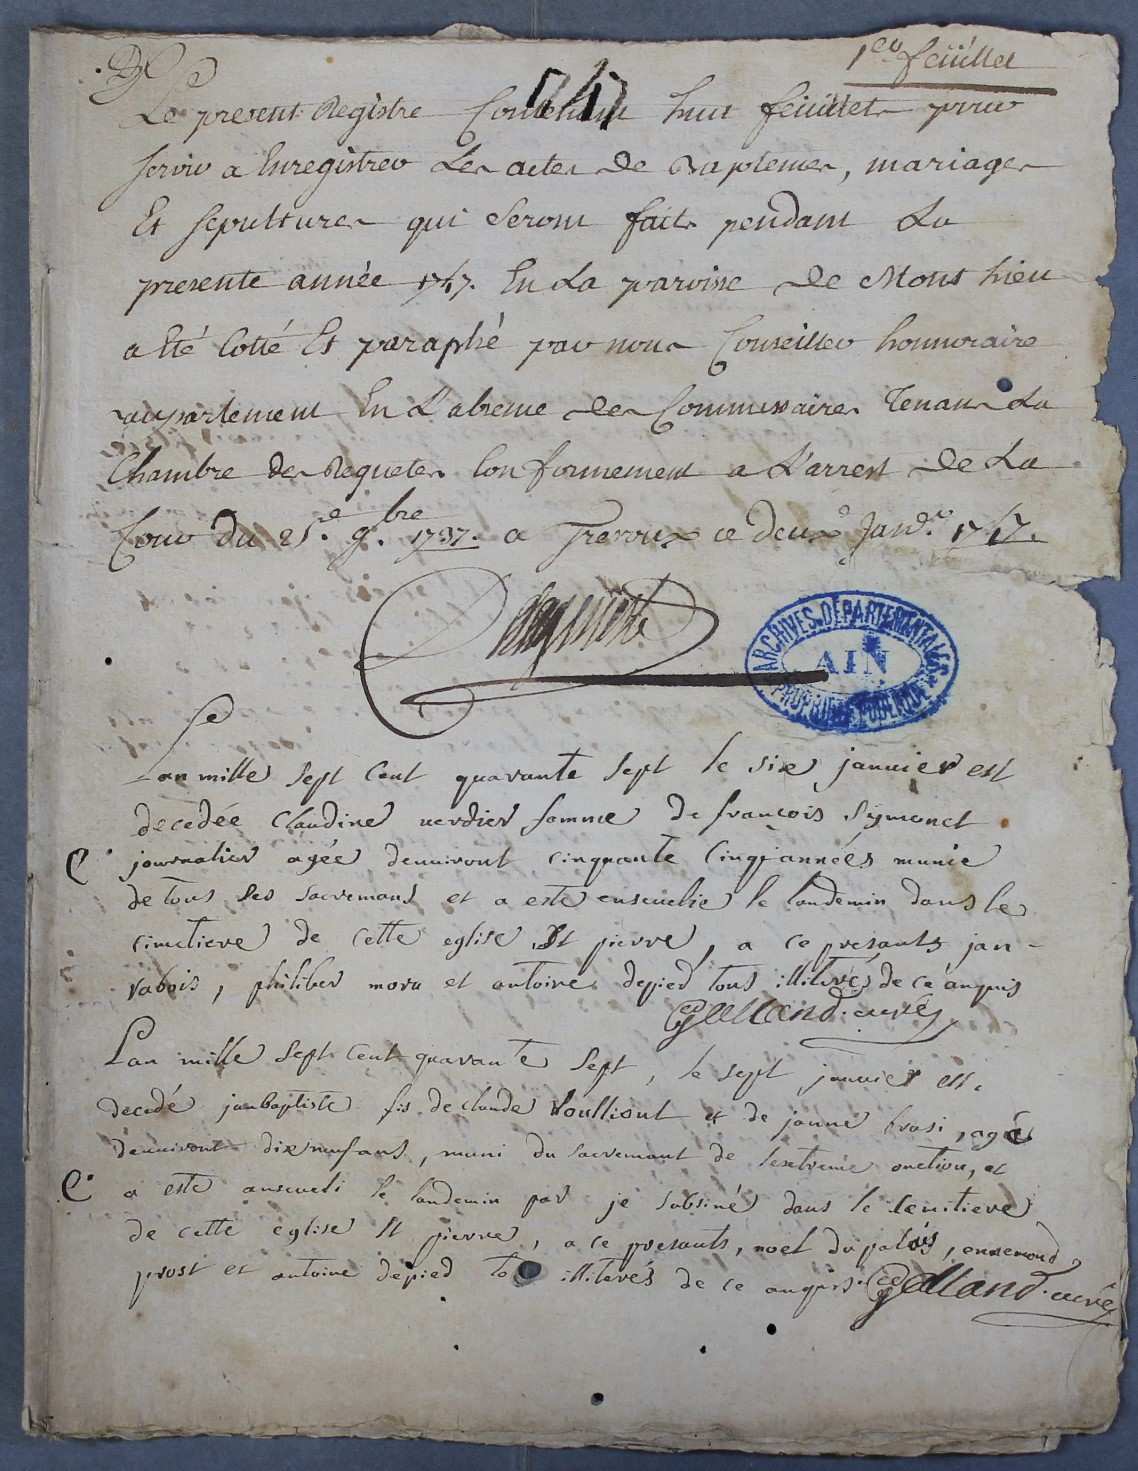 1er feüillet
1747
Le present Registre Contenant huit feüillets pour
servir a Enregistrer les actes de Baptemes, mariages
Et sepultures qui seront faits pendant La
presente année 1747. En La paroisse de Monthieu
a Eté Cotté Et paraphé par nous Conseiller honnoraire
au parlement En L'absence des Commissaires Tenans La
Chambre des Requetes Conformement a L'arrest de La
Cour du 25e. 9bre. 1737. a Trevoux ce deux Janvr. 1747.
ARCHIVES DÉPARTEMENTALES
AIN
PROPRIÉTÉ PUBLIQUE
Lan mille sept cent quarante sept le six januier est
decedée Claudine uerdier famme de françois Symonet
journalier agée denuiront cinquante Cinq années munie
de tous les sacremans et a esté enseuelie le landemin dans le
cimetiere de cette eglise St pierre, a ce presants jan-
rabois, philiber mora et antoine depied tous illiterés de cé anquis
Galland. curé
Lan mille sept Cent quarante sept, le sept januier est
decedé janbaptiste fis de claude Voulliont et de janne brasi, agé
denuiront dix neuf ans, muni du sacremant de lextreme onction, et
a esté anseueli le landemin par je subsiné dans le semitiere
de cette eglise St pierre, a ce presants, noel du palais, ennemond
prost et antoine depied tous illiterés de ce anquis. Galland. curé